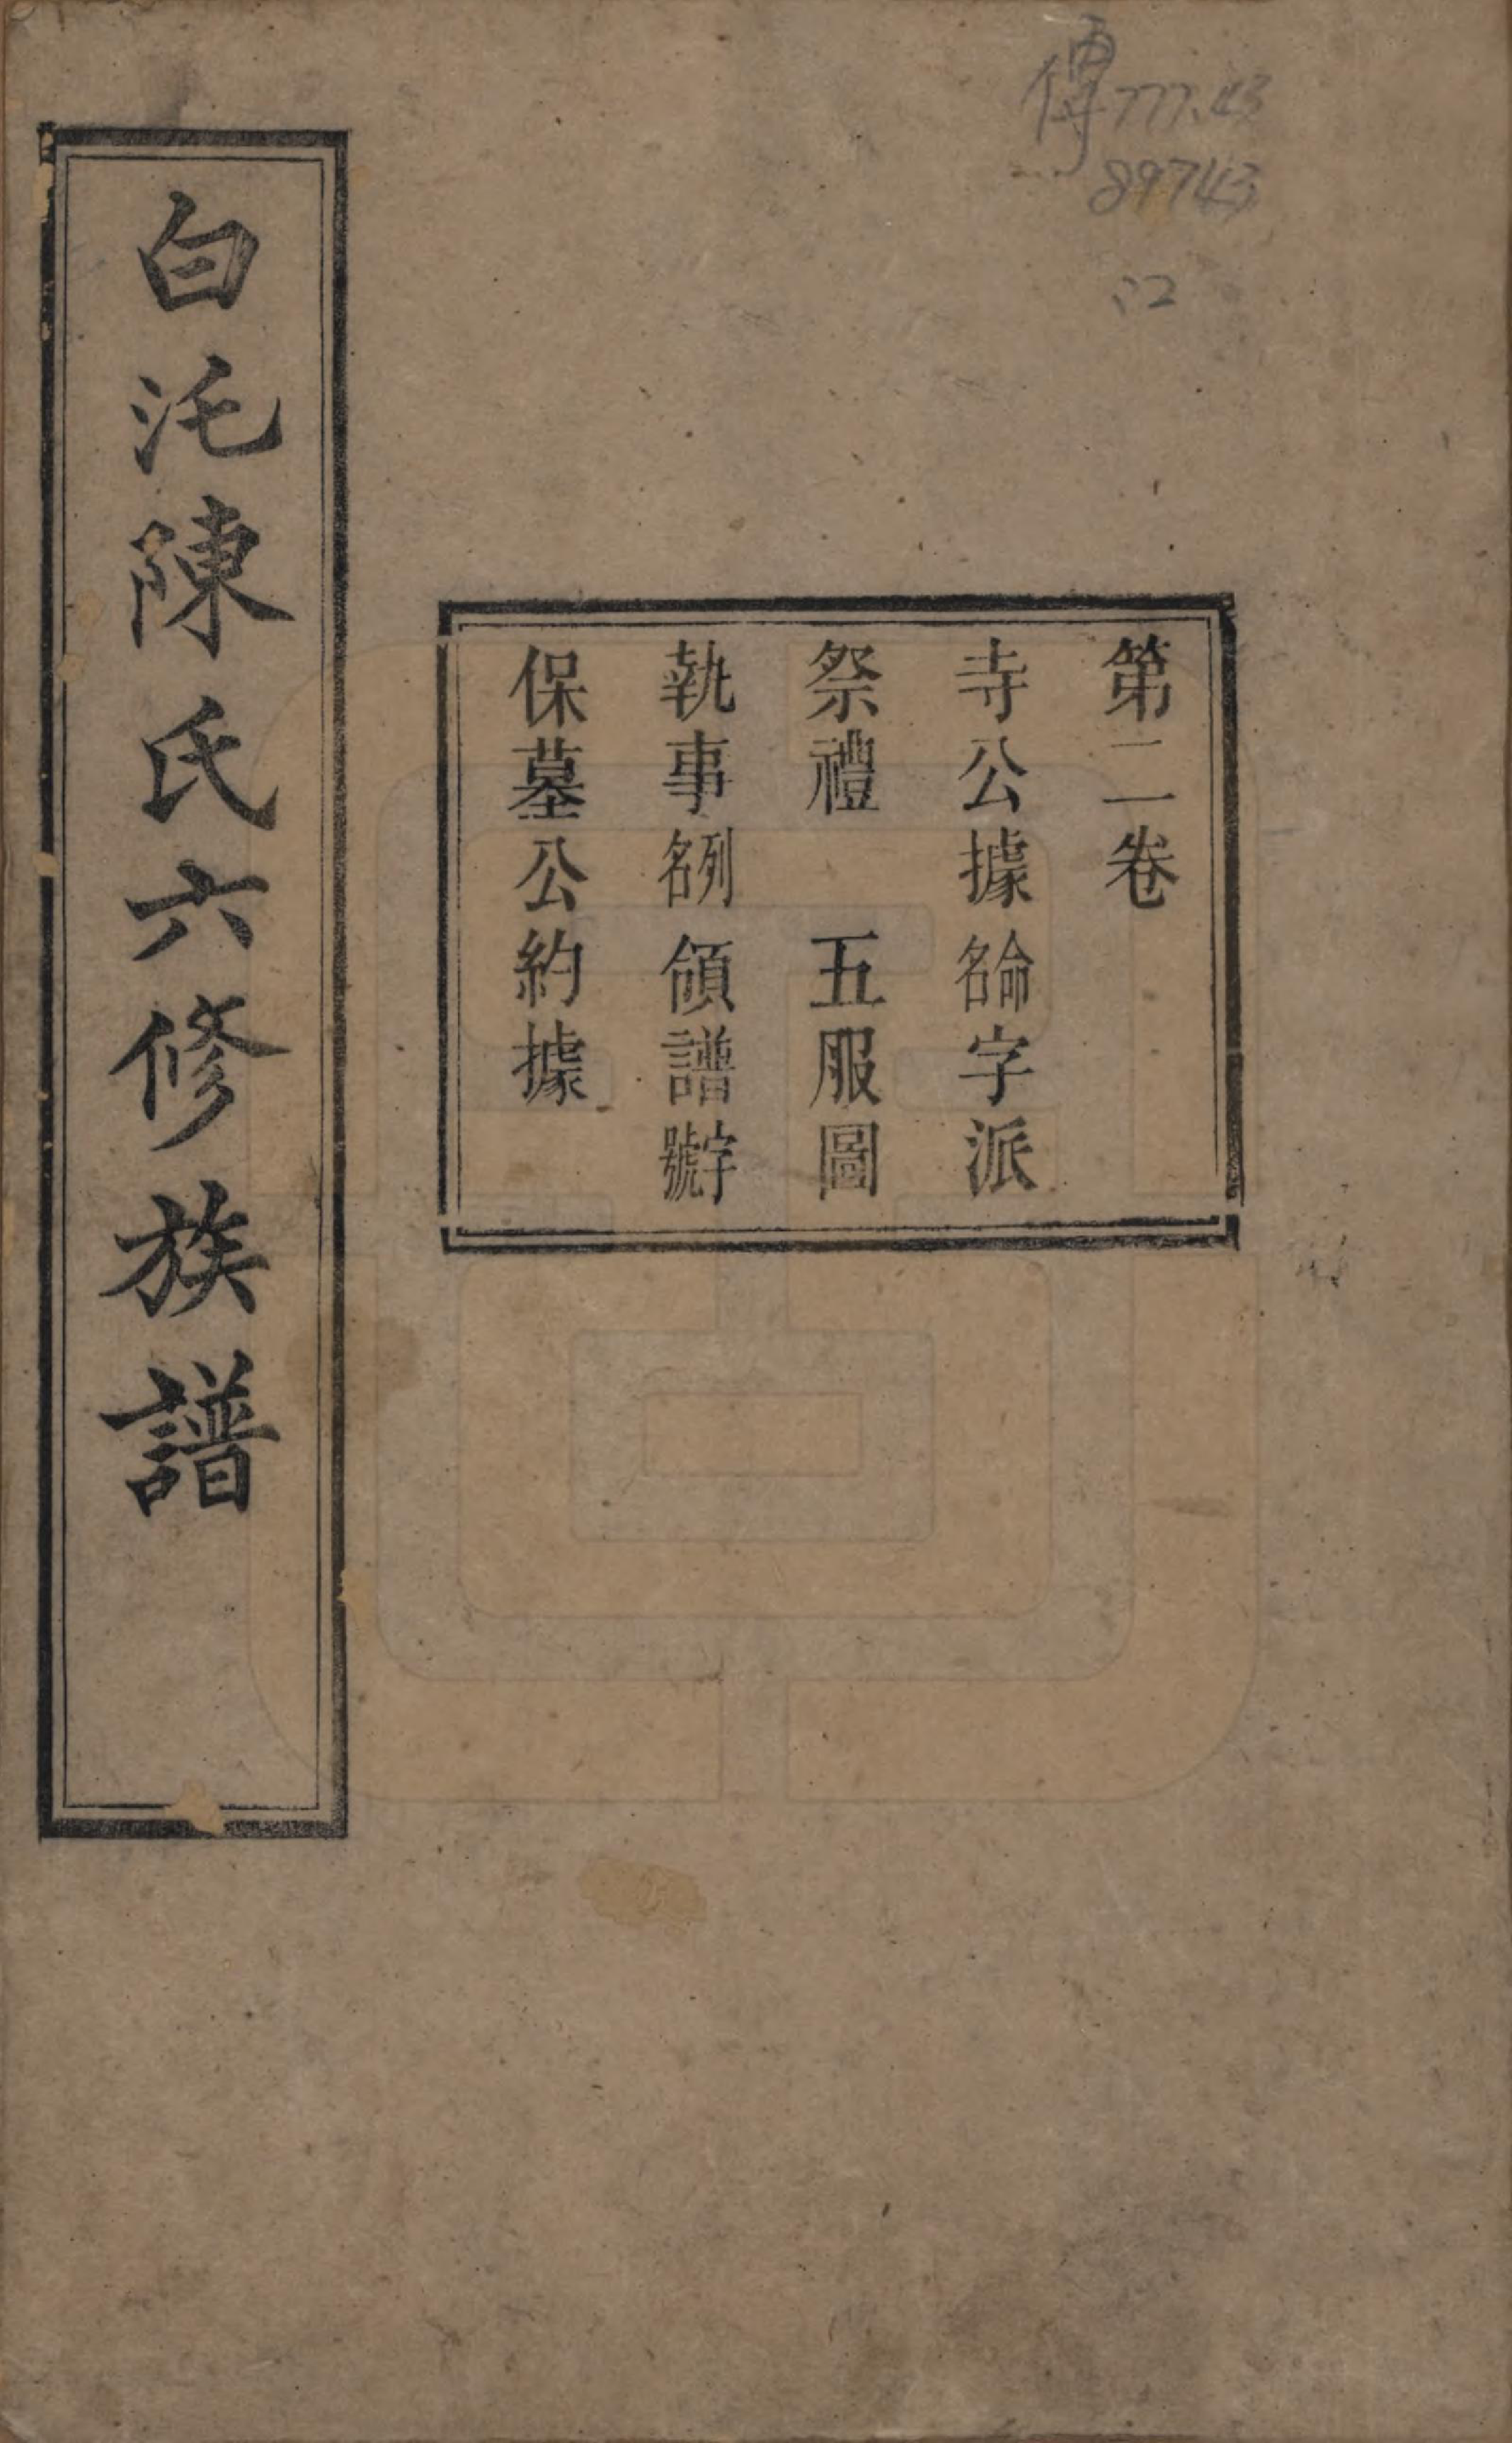 傳777.43
89743
:2
第二卷
寺公據 命名字派
祭禮 五服圖
執事列名 領譜字號
保墓公約據
白沱陳氏六修族譜